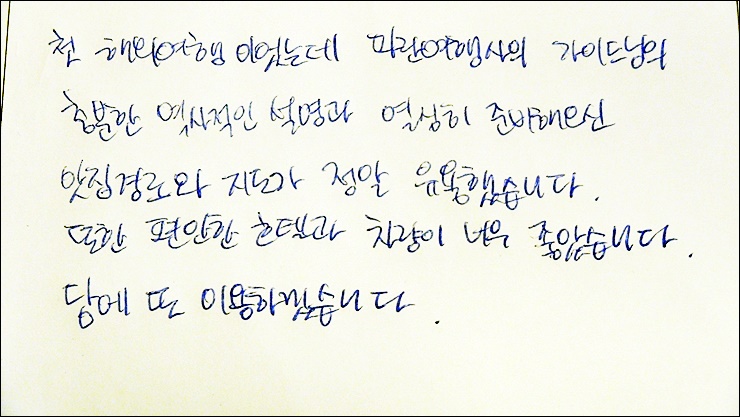 첫 해외여행이었는데 파란여행사의 가이드님의
충분한 역사적인 설명과 열심히 준비해오신
맛집경로와 지도가 정말 유용했습니다.
또한 편안한 호텔과 차량이 너무 좋았습니다.
담에 또 이용하겠습니다.